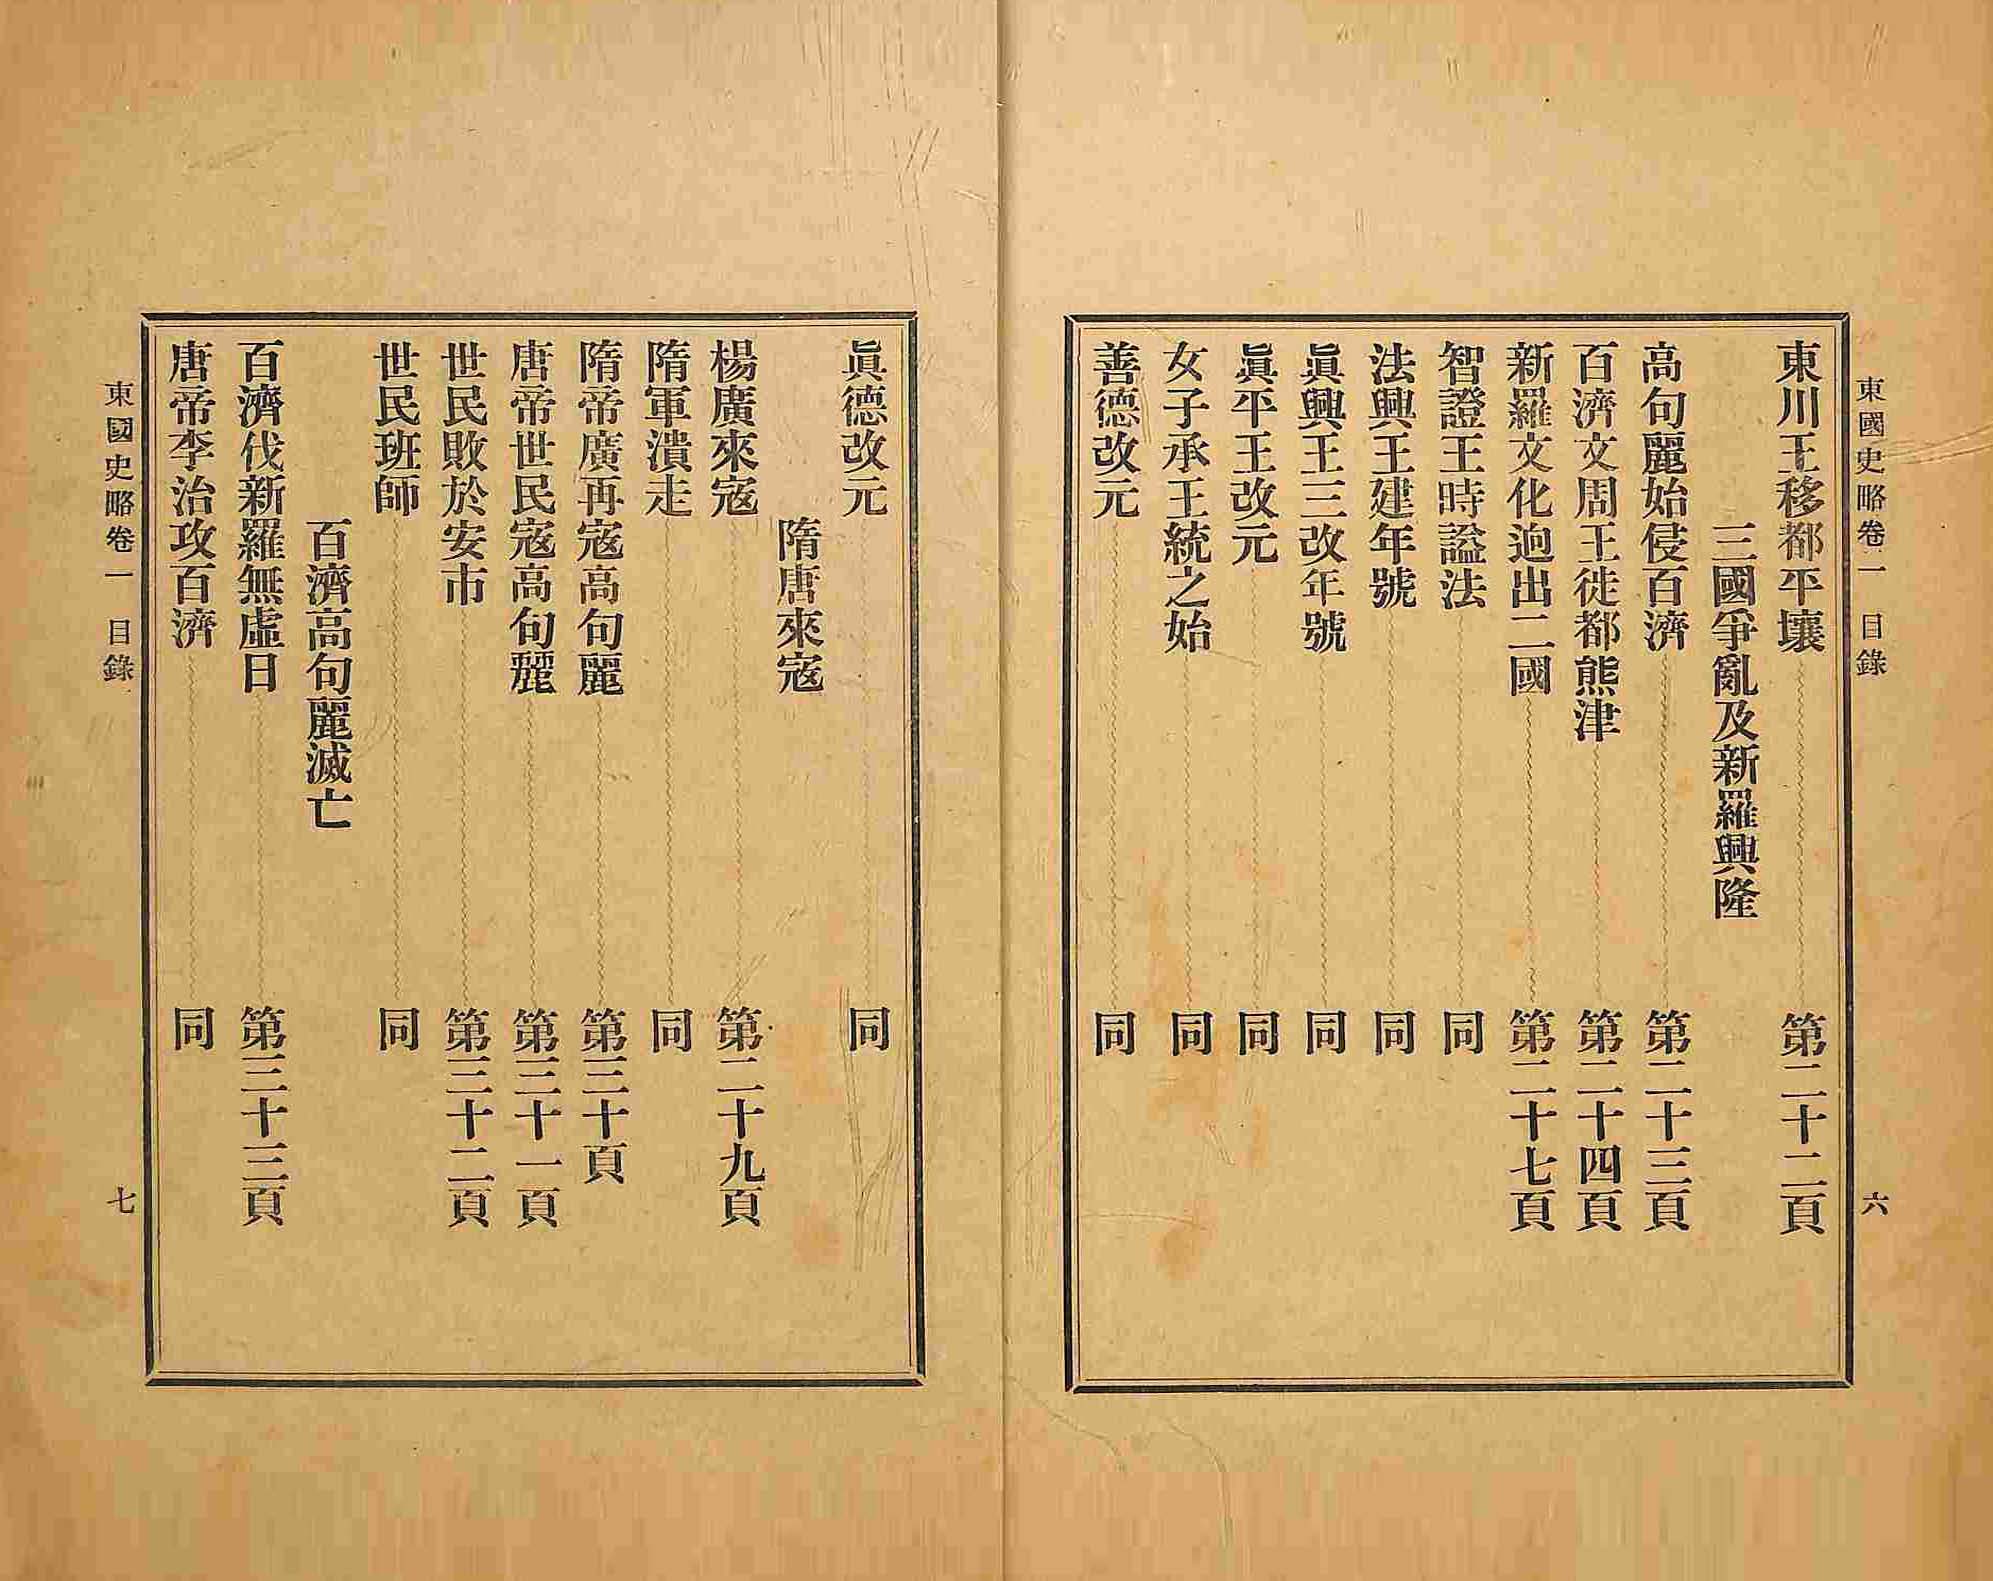 東國史略卷一 目錄 六
東川王移都平壤 第二十二頁
三國爭亂及新羅興隆
高句麗始侵百濟 第二十三頁
百濟文周王徙都熊津 第二十四頁
新羅文化逈出二國 第二十七頁
智證王時謚法 同
法興王建年號 同
眞興王三改年號 同
眞平王改元 同
女子承王統之始 同
善德改元 同
眞德改元 同
隋唐來寇
楊廣來寇 第二十九頁
隋軍潰走 同
隋帝廣再寇高句麗 第三十頁
唐帝世民寇高句麗 第三十一頁
世民敗於安市 第三十二頁
世民班師 同
百濟高句麗滅亡
百濟伐新羅無虛日 第三十三頁
唐帝李治攻百濟 同
東國史略卷一 目錄 七